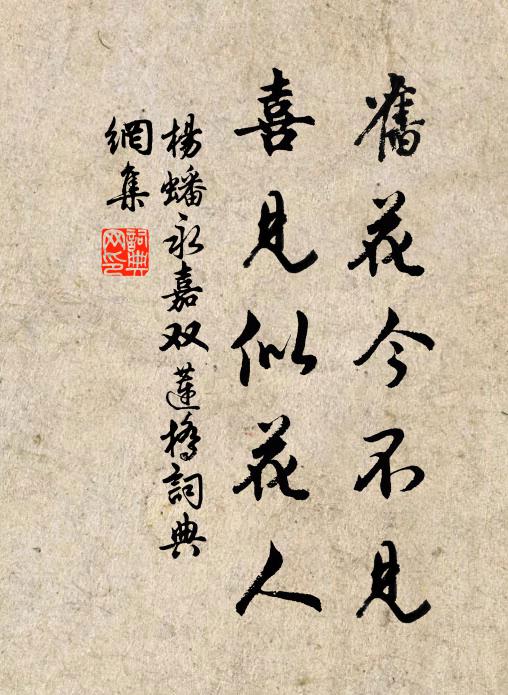 舊花今不見
喜見似花人
楊蟠永嘉双蓮橋詞典
網集
詞典
网印